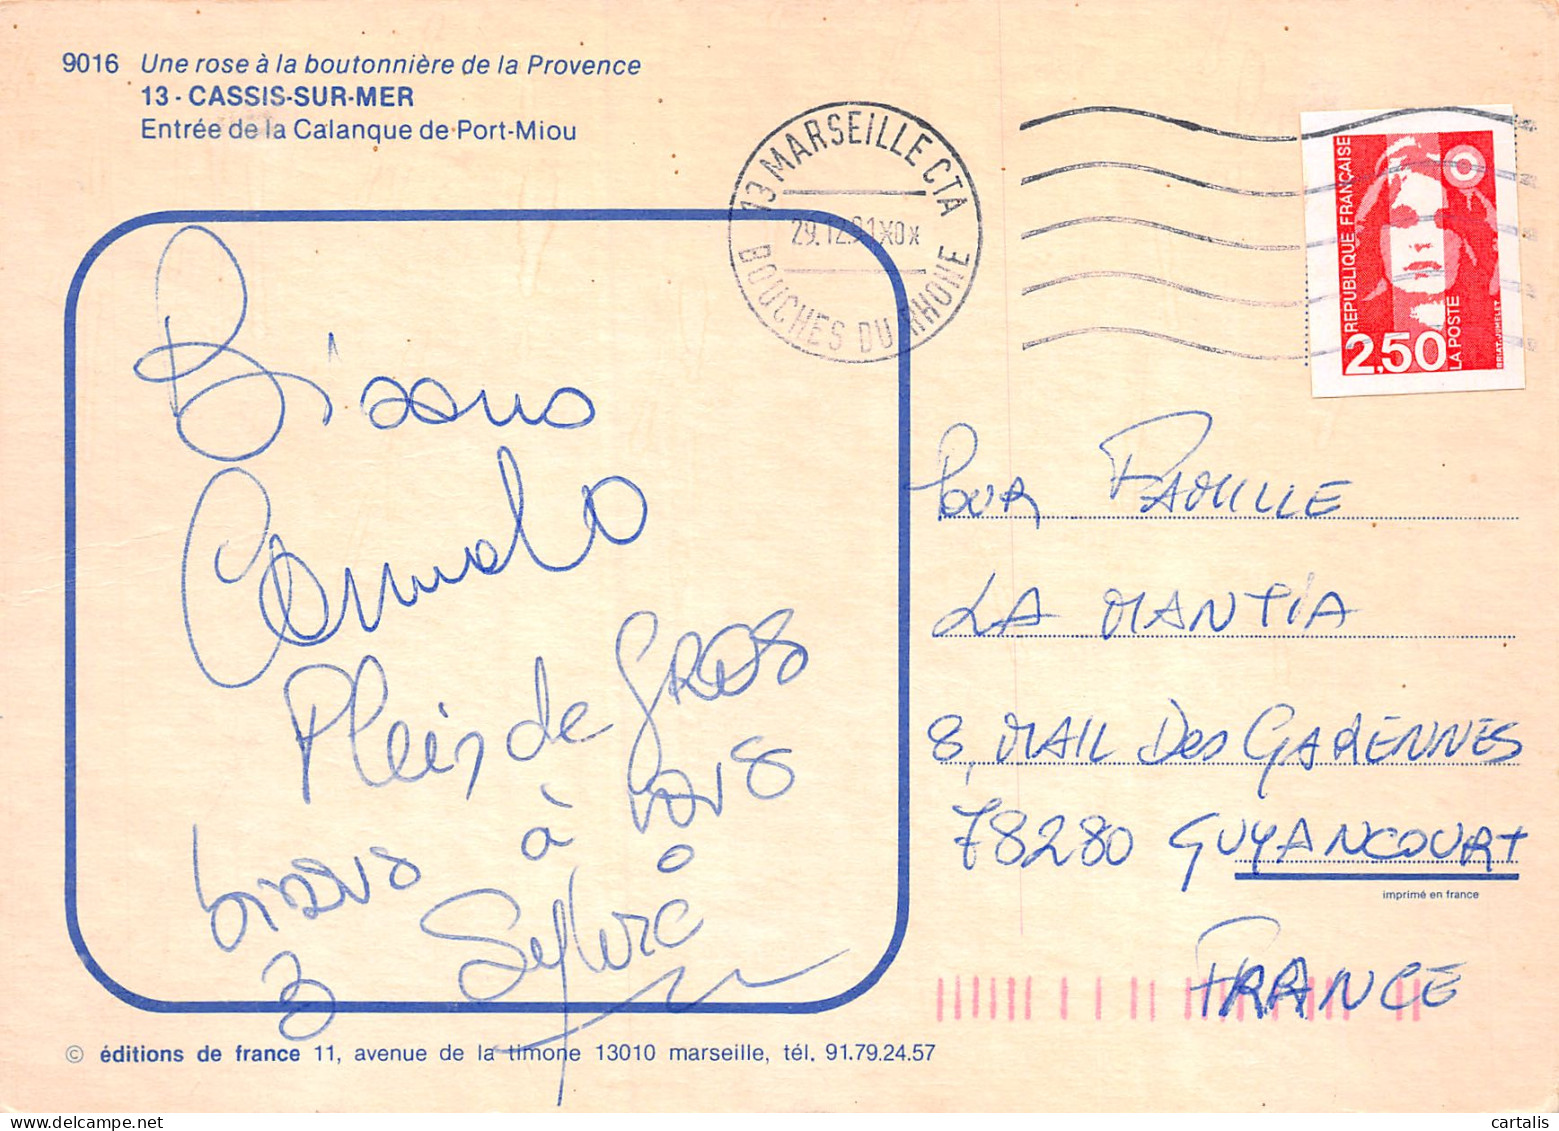 9016 Une rose à la boutonnière de la Provence
13 - CASSIS-SUR-MER
Entrée de la Calanque de Port-Miou
13 MARSEILLE CTA
29.12.91
BOUCHES DU RHONE
REPUBLIQUE FRANÇAISE
LA POSTE
2,50
BRIAT-JUMELET
Bisous
Plein de GROS
bisous à vous
3
Sylvie
POUR FAMILLE
LA MANTIA
8, MAIL Des GARENNES
78280 GUYANCOURT
imprimé en france
FRANCE
© éditions de france 11, avenue de la timone 13010 marseille, tél. 91.79.24.57
cartalis